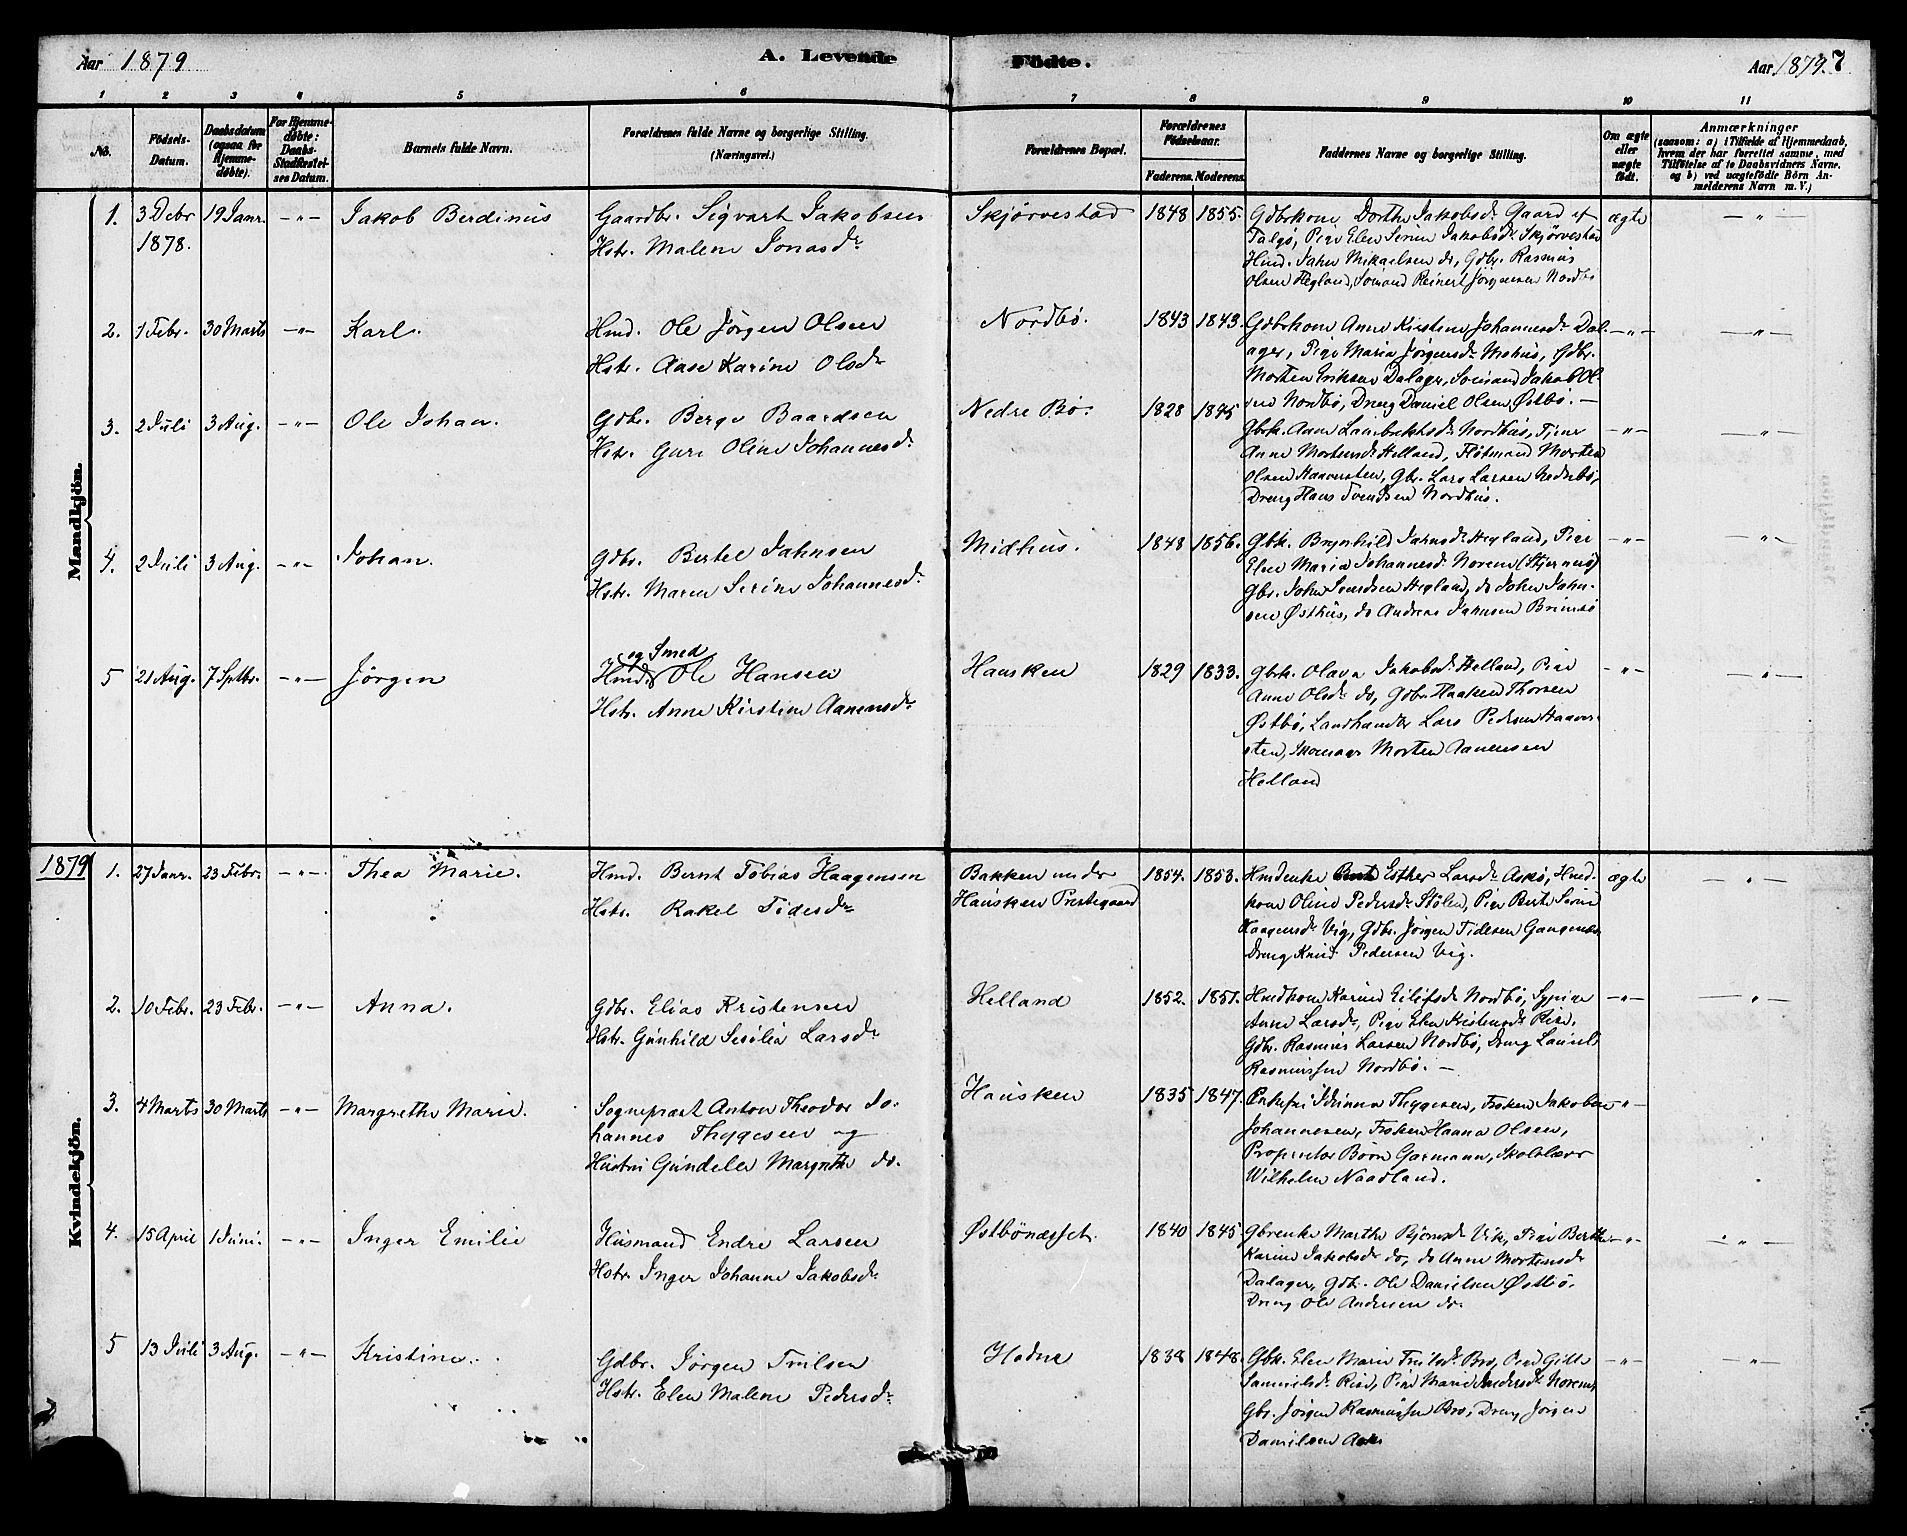 Aar 1879
A. Levende
Födte.
Aar 1879. 7
1 2 3 4 5 6 7 8 9 10 11
No.
Födsels-Datum.
Daabsdatum (ogsaa for Hjemme-døbte).
For Hjemme-døbte: Daabs-Stadfæstel-ses Datum.
Barnets fulde Navn.
Forældrenes fulde Navne og borgerlige Stilling. (Næringsvei.)
Forældrenes Bopæl.
Forældrenes Födselsaar.
Faderens. Moderens.
Faddernes Navne og borgerlige Stilling.
Om ægte eller uægte födt.
Anmærkninger
(saasom: a) i Tilfælde af Hjemmedaab,
hvem der har forrettet samme, med
Tilføielse af to Daabsvidners Navne,
og b) ved uægtefödte Börn An-
melderens Navn m. V.)
Mandkjön.
1. 3 Debr 1878. 19 Janr. -"- Jakob Berdinus
Gaardbr. Sigvart Jakobsen
Hstr. Malene Jonasdr
Skjørvestad 1848 1855.
Gdbrkone Dorthe Jakobsdr Gaard af
Talgø, Pige Elen Serine Jakobsdr Skjørvestad
Hmd. Jahn Mikaelsen do, Gdbr. Rasmus
Olsen Hegland, Sømand Reinert Jørgensen Nordbø
ægte -"-
2. 1 Febr. 30 Marts -"- Karl.
Hmd. Ole Jörgen Olsen
Hstr. Aase Karine Olsdr
Nordbø. 1843 1843.
Gdbrkone Anne Kirstine Johannesdr Dal-
ager, Pige Maria Jörgensdr Mehus, Gdbr.
Morten Eriksen Dalager, Sömand Jakob Ol-
sen Nordbø, Dreng Daniel Olsen Østbø. -
-"- -"-
3. 2 Juli 3 Aug. -"- Ole Johan.
Gdbr. Berge Baardsen
Hstr. Guri Oline Johannesdr
Nedre Bø. 1828 1845
Gbrk. Anne Lambrektsdr Nordhus, Pige
Anne Mortensdr Helland, Fløtmand Morten
Olsen Haavesten, Gbr. Lars Larsen Nedrebø,
Dreng Hans Svendsen Nordhus.
-"- -"-
4. 2 Juli 3 Aug. -"- Johan.
Gdbr. Bertel Jahnsen
Hstr. Maren Serine Johannesdr
Midhus. 1848 1856.
Gbk. Brynhild Jahnsdr Hegland, Pige
Elen Maria Johannesdr Norem (Stjernø)
Gbr. John Svendsen Hegland, do John Jahn-
sen Østhus, do Andreas Jahnsen Brimsø
-"- -"-
5 21 Aug. 7 Sptbr. -"- Jörgen
og Smed
Hmd. Ole Hansen
Hstr. Anne Kirstine Aanensdr
Hausken 1829 1833.
Gbrk. Olava Jakobsdr Helland, Pige
Anne Olsdr do, Gdbr. Haaken Thorsen
Østbø, Landhandler Lars Pedersen Haave-
sten, Skomager Morten Aanensen
Helland
-"- -"-
1879
Kvindekjön.
1. 27 Janr. 23 Febr. -"- Thea Marie.
Hmd. Bernt Tobias Haagensen
Hstr. Rakel Tidesdr
Bakken under
Hausken Prestegaard
1854. 1853.
Hmdenke Esther Larsdr Askø, Hmd-
kone Oline Pedersdr Stölen, Pige Berte Serine
Haagensdr Vig, Gdbr. Jörgen Tidesen Gangenes
Dreng Knud Pedersen Vig.
ægte -"-
2. 10 Febr. 23 Febr. -"- Anna.
Gdbr. Elias Kristensen
Hstr. Gunhild Sesilia Larsdr
Helland 1852. 1851.
Hmdkone Karine Eilifsdr Nordbø, Sypige
Anne Larsdr, Pige Elen Kristensdr Rise,
Gdbr. Rasmus Larsen Nordbø, Dreng Laurits
Rasmussen Nordbø. -
-"- -"-
3. 4 Marts 30 Marts -"- Margrethe Marie.
Sognepræst Anton Theodor Jo-
hannes Thygesen og
Hustru Gundele Margrethe do.
Hausken 1835 1847.
Enkefru Thygesen, Frøken Jakobine
Johannesen, Frøken Haana Olsen,
Proprietær Börn Garmann, Skolelærer
Wilhelm Naadland.
-"-
4. 15 April 1 Juni. -"- Inger Emilie
Husmand Endre Larsen
Hstr. Inger Johanne Jakobsdr
Østbönæsset. 1840 1845.
Gbrenke Marthe Bjørnsdr Vik, Pige Berthe
Karine Jakobsdr do, do Anne Mortensdr
Dalager, Gdbr. Ole Danielsen Østbø,
Dreng Ole Andersen do.
-"- -"-
5 13 Juli 3 Aug. -"- Kristine.
Gdbr. Jörgen Trulsen
Hstr. Elen Malene Pedersdr
Hodne 1838 1848.
Gbk. Elen Marie Trulsdr Bro, Pige Gitle
Samuelsdr Rise, Pige Marie Andersdr Norem,
Gbr. Jörgen Rasmussen Bro, Dreng Jörgen
Danielsen Askø
-"- -"-